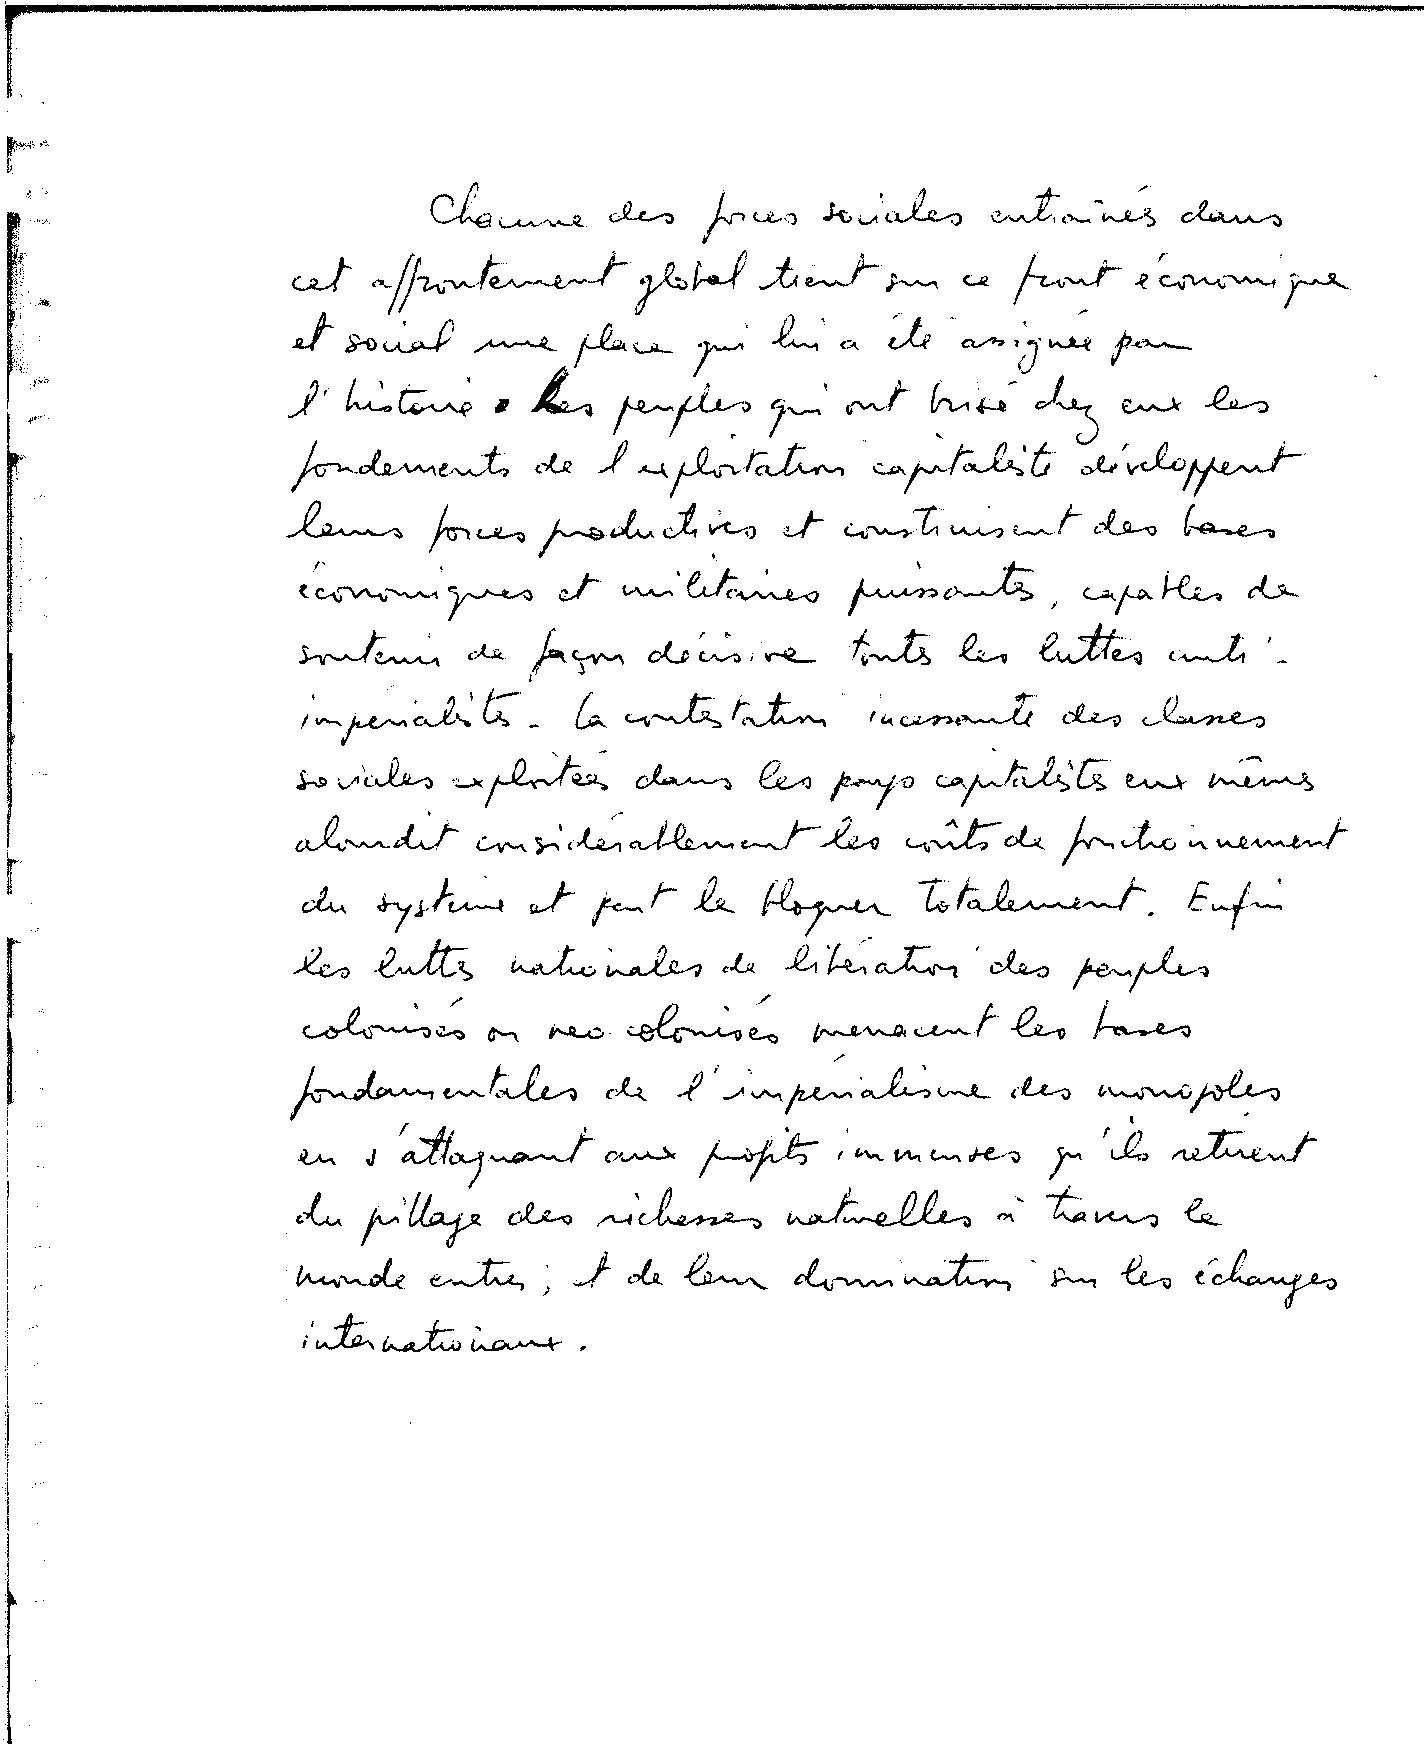 Chacune des forces sociales entrainés dans
cet affrontement global tient sur ce front économique
et social une place qui lui a été assignée par
l'histoire. Les peuples qui ont brisé chez eux les
fondements de l'exploitation capitaliste développent
leurs forces productives et construisent des bases
économiques et militaires puissantes, capables de
soutenir de façon décisive toutes les luttes anti-
impérialistes. La contestation incessante des classes
sociales exploitées dans les pays capitalistes eux mêmes
alourdit considérablement les coûts de fonctionnement
du système et peut le bloquer totalement. Enfin
les luttes nationales de libération des peuples
colonisés ou neo colonisés menacent les bases
fondamentales de l'impérialisme des monopoles
en s'attaquant aux profits immenses qu'ils retirent
du pillage des richesses naturelles à travers le
monde entier, et de leur domination sur les échanges
internationaux.